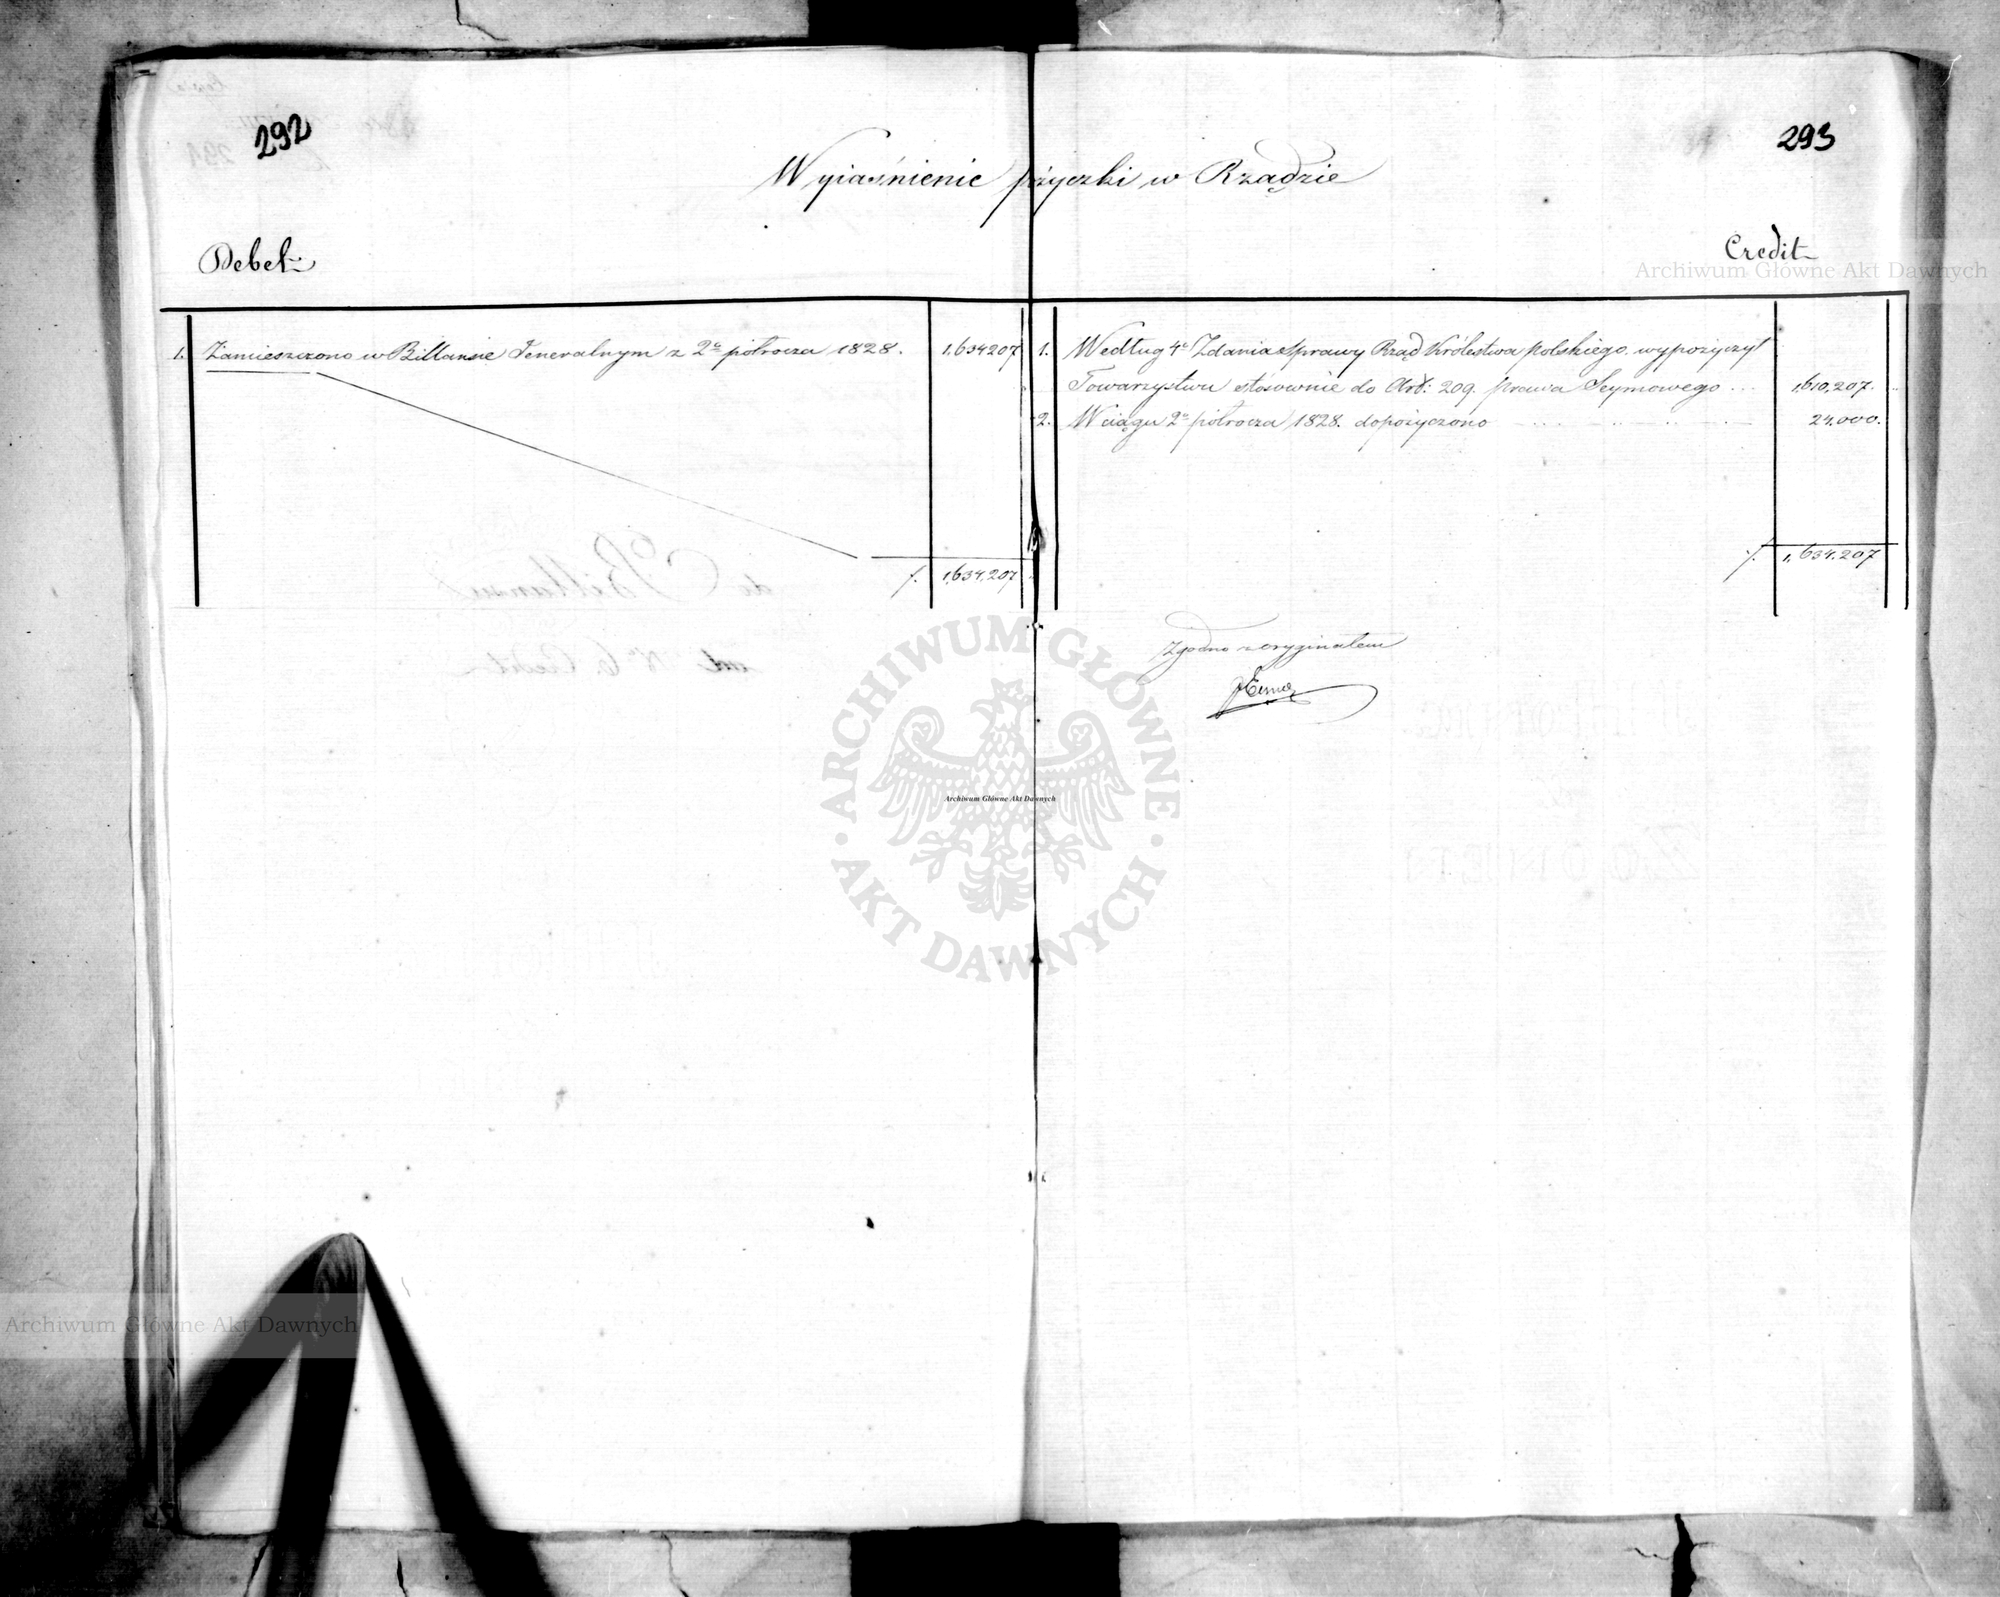 292
293
Wyiaśnienie pożyczki w Rządzie
Debet
Credit
1. Zamieszczono w Billansie Generalnym z 2o półrocza 1828. 1,634207
f. 1,634,207
1. Według 4o Zdania Sprawy Rząd Królestwa Polskiego wypożyczył
Towarzystwu stósownie do Art: 209. prawa Seymowego ... 1,610,207.
2. W ciągu 2o półrocza 1828. dopożyczono 24,000.
f. 1,634,207
Zgodno z oryginałem
Archiwum Główne Akt Dawnych
Archiwum Główne Akt Dawnych
Archiwum Główne Akt Dawnych
ARCHIWUM GŁÓWNE
AKT DAWNYCH